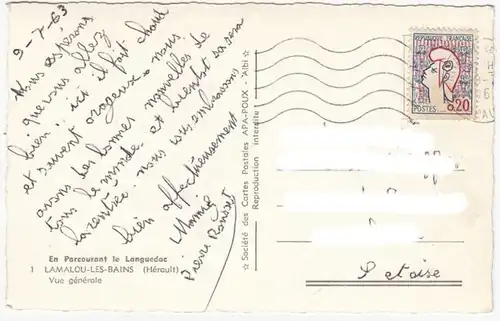 9-7-63
Nous espérons
que vous allez
bien. ici il fait chaud
et souvent orageux. nous
avons des bonnes nouvelles de
tout le monde. et bientôt sa sera
la rentrée. nous vous embrassons
bien affectueusement
Mamie
Pierre
En Parcourant le Languedoc
1 LAMALOU-LES-BAINS (Hérault)
Vue générale
☆ Société des Cartes Postales APA-POUX - Albi ☆
Reproduction interdite
REPUBLIQUE FRANÇAISE
POSTES 0,20